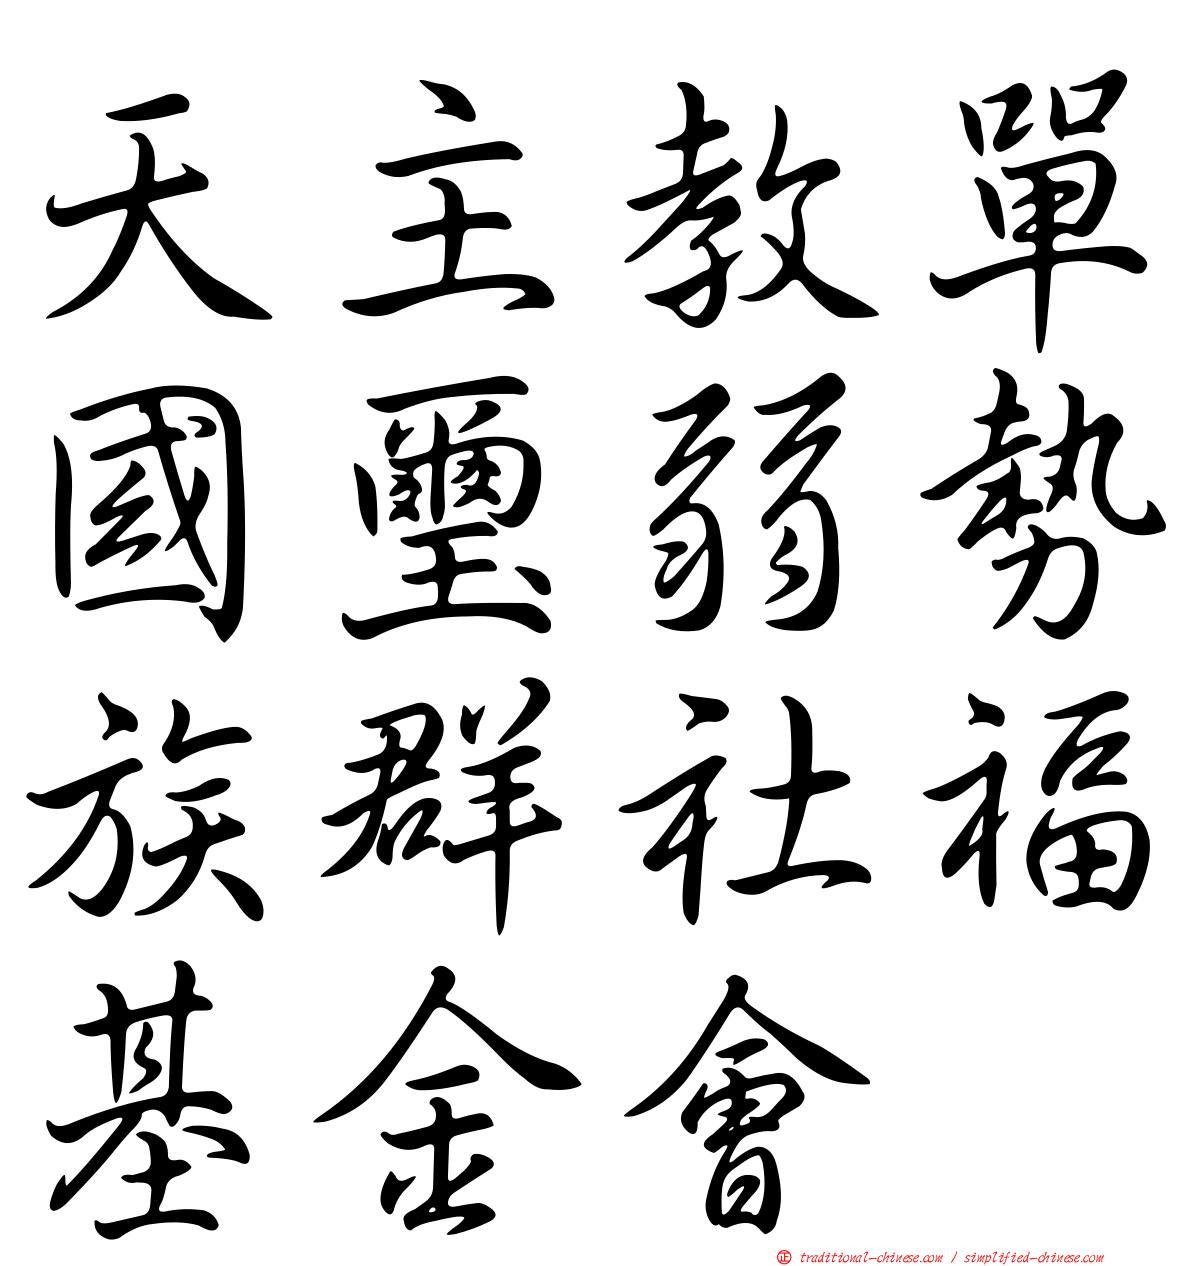 天主教單
國璽弱勢
族群社福
基金會
正 traditional-chinese.com / simplified-chinese.com